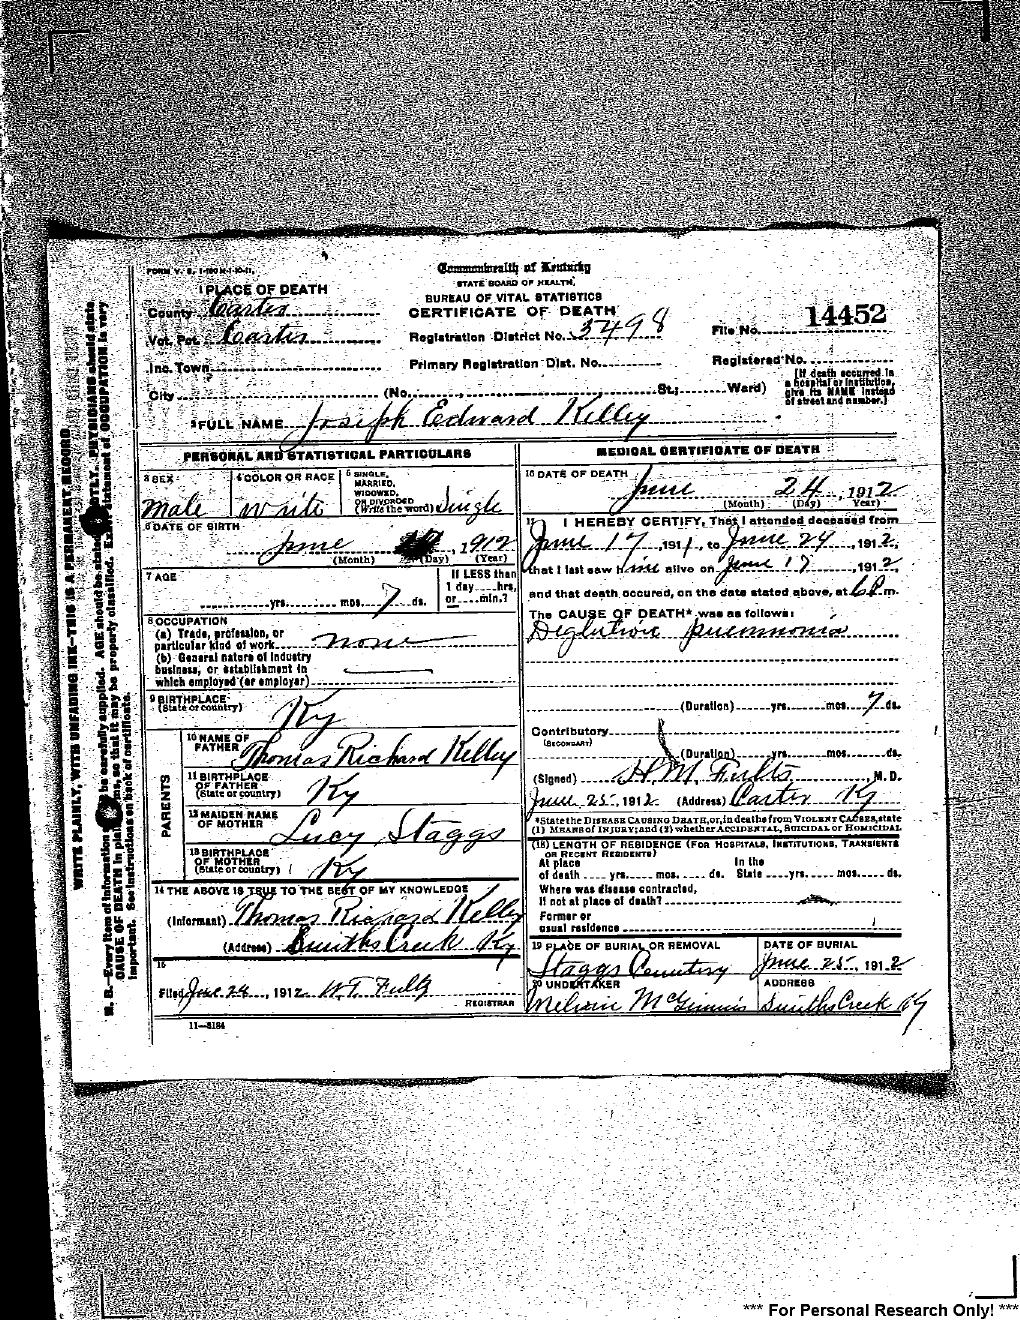 FORM V. S. 1-100 M-1-10-11.
Commonwealth of Kentucky
STATE BOARD OF HEALTH,
BUREAU OF VITAL STATISTICS
CERTIFICATE OF DEATH
1 PLACE OF DEATH
County Carter
Vot. Pct. Carter
Registration District No. 3498
File No. 14452
Inc. Town
Primary Registration Dist. No.
Registered No.
City (No. St.; Ward)
[If death occurred in
a hospital or institution,
give its NAME instead
of street and number.]
2 FULL NAME Joseph Edward Kelley
PERSONAL AND STATISTICAL PARTICULARS
3 SEX
male
4 COLOR OR RACE
write
5 SINGLE,
MARRIED,
WIDOWED,
OR DIVORCED
(Write the word) Single
6 DATE OF BIRTH
June , 1912
(Month) (Day) (Year)
7 AGE
yrs. mos. 7 ds.
If LESS than
1 day hrs.
or min.?
8 OCCUPATION
(a) Trade, profession, or
particular kind of work none
(b) General nature of industry
business, or establishment in
which employed (or employer)
9 BIRTHPLACE
(State or country) Ky
PARENTS
10 NAME OF
FATHER Thomas Richard Kelley
11 BIRTHPLACE
OF FATHER
(State or country) Ky
12 MAIDEN NAME
OF MOTHER Lucy Staggs
13 BIRTHPLACE
OF MOTHER
(State or country) Ky
14 THE ABOVE IS TRUE TO THE BEST OF MY KNOWLEDGE
(Informant) Thomas Richard Kelley
(Address) Smiths Creek Ky
15
Filed June 24, 1912 W.T. Fults
REGISTRAR
11-3184
MEDICAL CERTIFICATE OF DEATH
16 DATE OF DEATH
June 24, 1912
(Month) (Day) Year)
17 I HEREBY CERTIFY, That I attended deceased from
June 17, 1911, to June 24, 1912,
that I last saw him alive on June 17, 1912
and that death occured, on the date stated above, at 6 P. m.
The CAUSE OF DEATH* was as follows:
Deglution pneumonia
(Duration) yrs. mos. 7 ds.
Contributory
(SECONDARY)
(Duration) yrs. mos. ds.
(Signed) H. M. Fults, M. D.
June 25, 1912 (Address) Carter Ky
*State the DISEASE CAUSING DEATH, or, in deaths from VIOLENT CAUSES, state
(1) MEANS OF INJURY; and (2) whether ACCIDENTAL, SUICIDAL or HOMICIDAL
(18) LENGTH OF RESIDENCE (FOR HOSPITALS, INSTITUTIONS, TRANSIENTS
OR RECENT RESIDENTS)
At place
of death yrs. mos. ds.
In the
State yrs. mos. ds.
Where was disease contracted,
If not at place of death?
Former or
usual residence
19 PLACE OF BURIAL OR REMOVAL
Staggs Cemetery
DATE OF BURIAL
June 25, 1912
20 UNDERTAKER
McGinnis
ADDRESS
Smiths Creek Ky
WRITE PLAINLY, WITH UNFADING INK—THIS IS A PERMANENT RECORD
N. B.—Every item of information be carefully supplied. AGE should be state TLY. PHYSICIANS should state
CAUSE OF DEATH in plain ms, so that it may be properly classified. Ex statement of OCCUPATION is very
important. See instructions on back of certificate.
*** For Personal Research Only! ***